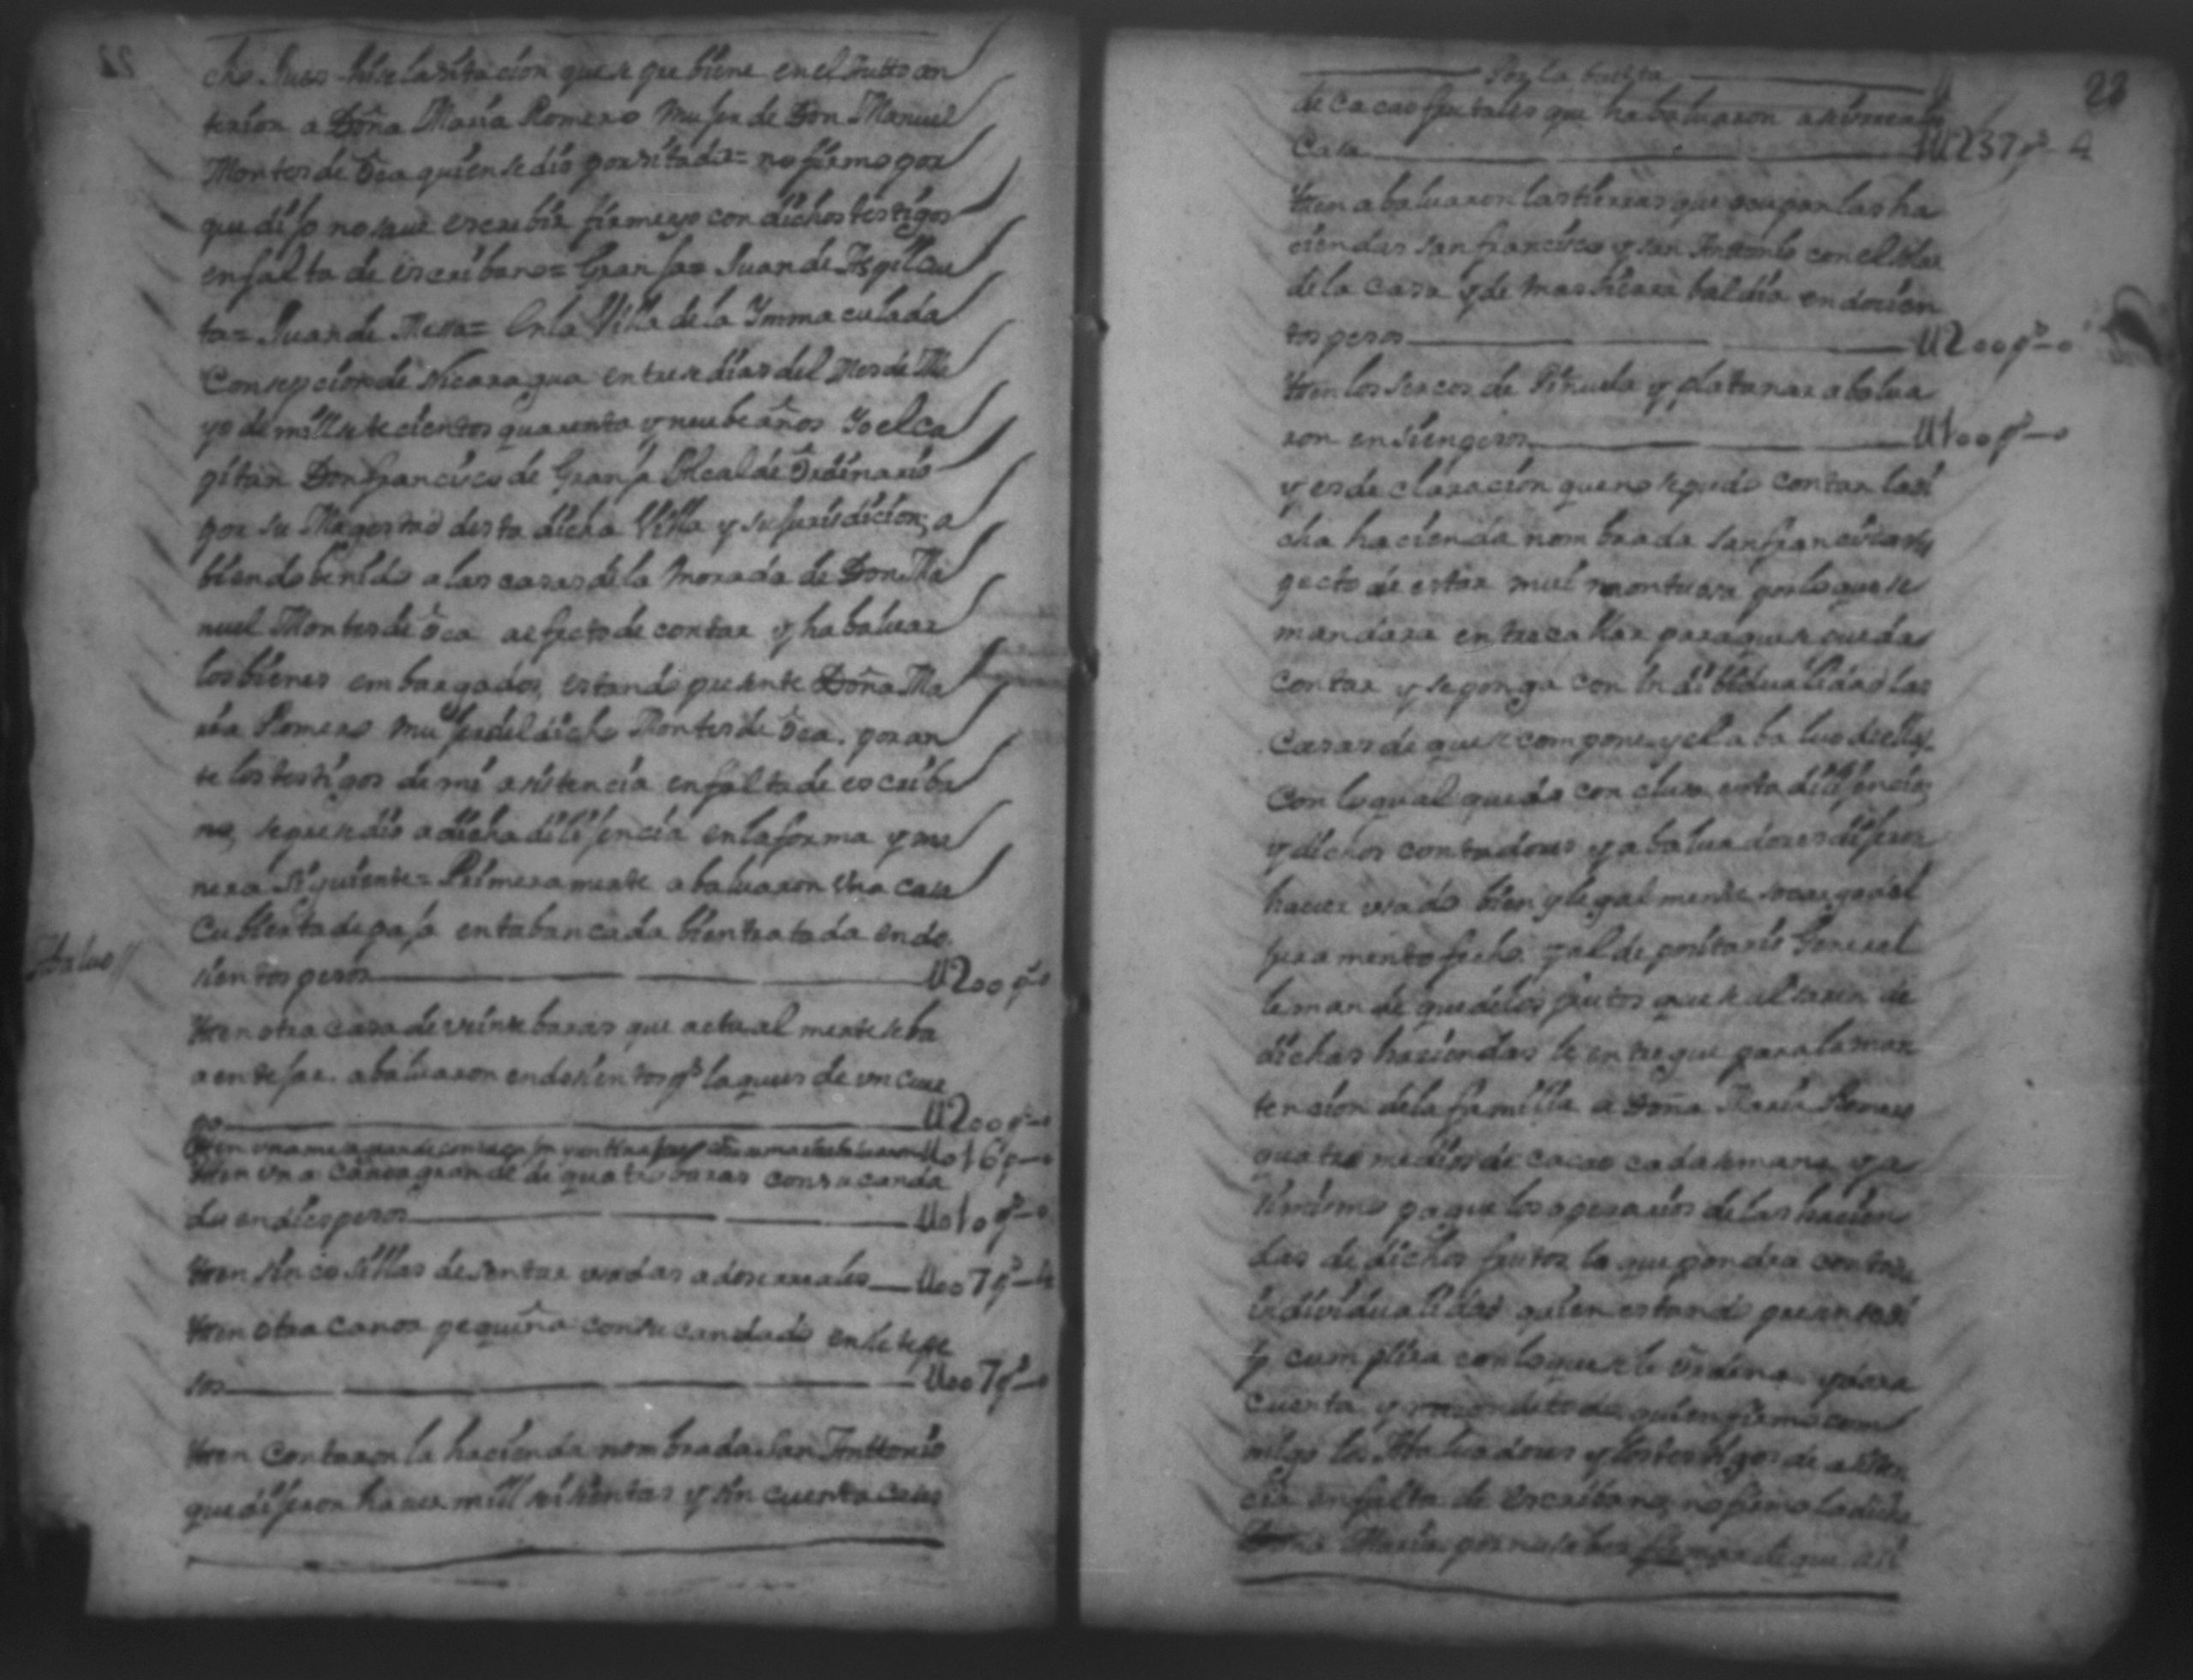 cho Juez hise la sitacion que se prebiene en el Autto an
terior a Doña Maria Romero Muger de Don Manuel
Montes de Oca quien se dio por sitada= no firmo por
que dijo no saver escrebir firmeyo con dichos testigos
en falta de escribano= Granja= Juan de Argilcue
ta= Juan de Mesa= En la Villa de la Ymmaculada
Consepcion de Nicaragua en trese dias del Mes de Ma
yo de mill setecientos quarenta y nuebe años Yo el ca
pitan Don francisco de Granja Alcalde Ordinario
por su Magestad desta dicha Villa y su jurisdicion, a
biendo benido a las casas de la Morada de Don Ma
nuel Montes de Oca aefecto de contar y habaluar
los bienes embargados, estando presente Doña Ma
ria Romero Muger del dicho Montes de Oca. por an
te los testigos de mi asistencia en falta de escriba
no, se prosedio a dicha dilijencia en la forma y ma
nera siguiente= Primeramente abaluaron Una casa
Cubierta de paja entabancada bien tratada en do
sientos pesos U200 ps-0
Abaluo//
Yten otra casa de veinte baras que actualmente se ba
a entejar. abaluaron en dosientos ps la que es de un cuer
po U200 ps-0
Yten una mesa grande con su cajon abaluaron U016 ps-0
Yten Una Canoa grande de quatro baras con su canda
do en dies pesos U010 ps-0
Yten sinco sillas de sentar usadas a dose reales U007 ps-4
Yten otra canoa pequeña con su candado en siete pe
sos U007 ps-0
Yten Contaron la hacienda nombrada San Anttonio
que dijeron haver mill seisientas y sinquenta casas
Por la buelta
22
de Cacao frutales que habaluaron a seis reales
Casa 1U237 ps-4
Yten abaluaron las tierras que ocupan las ha
ciendas san francisco y san Anttonio con el solar
de la casa y de mas tierra baldia en dosien
tos pesos U200 ps-0
Yten los sercos de Piñuela y platanar abalua
ron en sien pesos U100 ps-0
y es declaracion que no se pudo contar la di
cha hacienda nombrada san francisco res
pecto de estar mui montuosa por lo que se
mandara entrecallar para que se pueda
contar y se ponga con indibidualidad las
Casas de que se compone y el abaluo de ellas
Con lo qual quedo conclusa esta dilijencia,
y dichos contadores y abaluadores dijeron
haver usado bien y legalmente so cargo del
juramento fecho. y al depositario General
le mande que de los frutos que se alsaren de
dichas haciendas le entregue para la man
tencion de la familia a Doña Maria Romero
quatro medios de cacao cada semana y a
simismo pague los operarios de las hacien
das de dichos frutos lo que pondra con toda
individualidad quien estando presente di
jo cumplira con lo que se le ordena y dara
Cuenta y razon de todo, quien firmo com
migo los Abaluadores y los testigos de asisten
cia en falta de escribano, no firmo la dicha
Doña Maria por no saber firmar de que asi